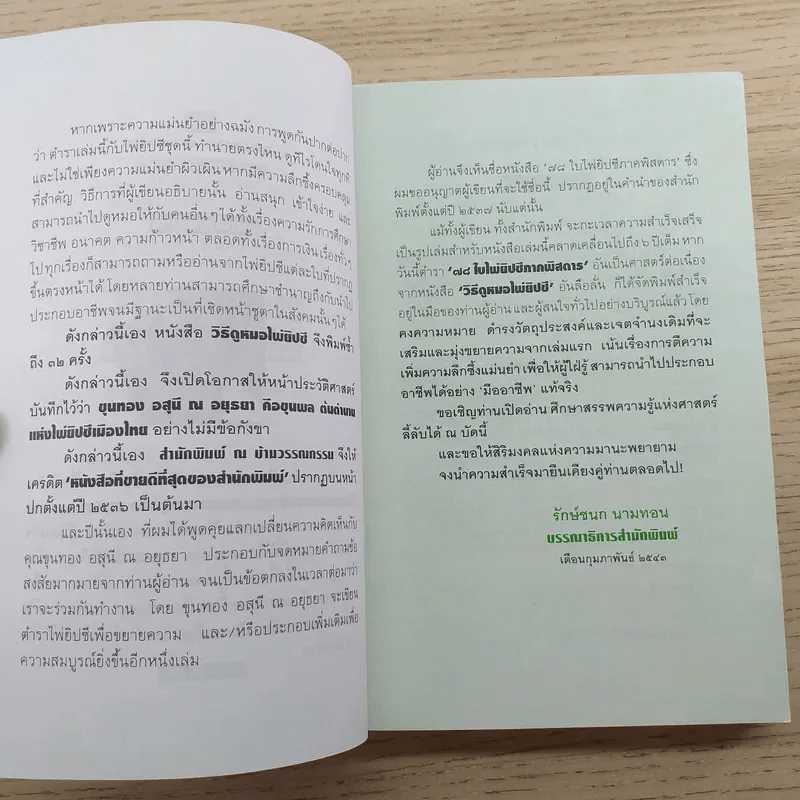 หากเพราะความแม่นยำอย่างฉมัง การพูดกันปากต่อปาก
ว่า ตำราเล่มนี้กับไพ่ยิปซีชุดนี้ ทำนายตรงไหน ดูทีไรโดนใจทุกที
และไม่ใช่เพียงความแม่นยำผิวเผิน หากมีความลึกซึ้งครอบคลุม
ที่สำคัญ วิธีการที่ผู้เขียนอธิบายนั้น อ่านสนุก เข้าใจง่าย และ
สามารถนำไปดูหมอให้กับคนอื่น ๆ ได้ทั้งเรื่องความรัก การศึกษา
วิชาชีพ อนาคต ความก้าวหน้า ตลอดทั้งเรื่องการเงิน เรื่องทั่วๆ
ไปทุกเรื่องก็สามารถถามหรืออ่านจากไพ่ยิปซีแต่ละใบที่ปรากฏ
ขึ้นตรงหน้าได้ โดยหลายท่านสามารถศึกษาชำนาญถึงกับนำไป
ประกอบอาชีพจนมีฐานะเป็นที่เชิดหน้าชูตาในสังคมนั้น ๆ ได้
ดังกล่าวนี้เอง หนังสือ วิธีดูหมอไพ่ยิปซี จึงพิมพ์ซ้ำ
ถึง ๓๒ ครั้ง
ดังกล่าวนี้เอง จึงเปิดโอกาสให้หน้าประวัติศาสตร์
บันทึกไว้ว่า ขุนทอง อสุนี ณ อยุธยา คือขุนพล ต้นตำนาน
แห่งไพ่ยิปซีเมืองไทย อย่างไม่มีข้อกังขา
ดังกล่าวนี้เอง สำนักพิมพ์ ณ บ้านวรรณกรรม จึงให้
เครดิต 'หนังสือที่ขายดีที่สุดของสำนักพิมพ์' ปรากฏบนหน้า
ปกตั้งแต่ปี ๒๕๓๖ เป็นต้นมา
และปีนั้นเอง ที่ผมได้พูดคุยแลกเปลี่ยนความคิดเห็นกับ
คุณขุนทอง อสุนี ณ อยุธยา ประกอบกับจดหมายคำถามข้อ
สงสัยมากมายจากท่านผู้อ่าน จนเป็นข้อตกลงในเวลาต่อมาว่า
เราจะร่วมกันทำงาน โดย ขุนทอง อสุนี ณ อยุธยา จะเขียน
ตำราไพ่ยิปซีเพื่อขยายความ และ/หรือประกอบเพิ่มเติมเพื่อ
ความสมบูรณ์ยิ่งขึ้นอีกหนึ่งเล่ม
ผู้อ่านจึงเห็นชื่อหนังสือ '๗๘ ใบไพ่ยิปซีภาคพิสดาร' ซึ่ง
ผมขออนุญาตผู้เขียนที่จะใช้ชื่อนี้ ปรากฏอยู่ในคำนำของสำนัก
พิมพ์ตั้งแต่ปี ๒๕๓๗ นับแต่นั้น
แม้ทั้งผู้เขียน ทั้งสำนักพิมพ์ จะกะเวลาความสำเร็จเสร็จ
เป็นรูปเล่มสำหรับหนังสือเล่มนี้คลาดเคลื่อนไปถึง ๖ ปีเต็ม หาก
วันนี้ตำรา '๗๘ ใบไพ่ยิปซีภาคพิสดาร' อันเป็นศาสตร์ต่อเนื่อง
จากหนังสือ 'วิธีดูหมอไพ่ยิปซี' อันลือลั่น ก็ได้จัดพิมพ์สำเร็จ
อยู่ในมือของท่านผู้อ่าน และผู้สนใจทั่วไปอย่างบริบูรณ์แล้ว โดย
คงความหมาย ดำรงวัตถุประสงค์และเจตจำนงเดิมที่จะ
เสริมและมุ่งขยายความจากเล่มแรก เน้นเรื่องการตีความ
เพิ่มความลึกซึ้งแม่นยำ เพื่อให้ผู้ใฝ่รู้ สามารถนำไปประกอบ
อาชีพได้อย่าง 'มืออาชีพ' แท้จริง
ขอเชิญท่านเปิดอ่าน ศึกษาสรรพความรู้แห่งศาสตร์
ลี้ลับได้ ณ บัดนี้
และขอให้สิริมงคลแห่งความมานะพยายาม
จงนำความสำเร็จมายืนเคียงคู่ท่านตลอดไป!
รักษ์ชนก นามทอน
บรรณาธิการสำนักพิมพ์
เดือนกุมภาพันธ์ ๒๕๔๓